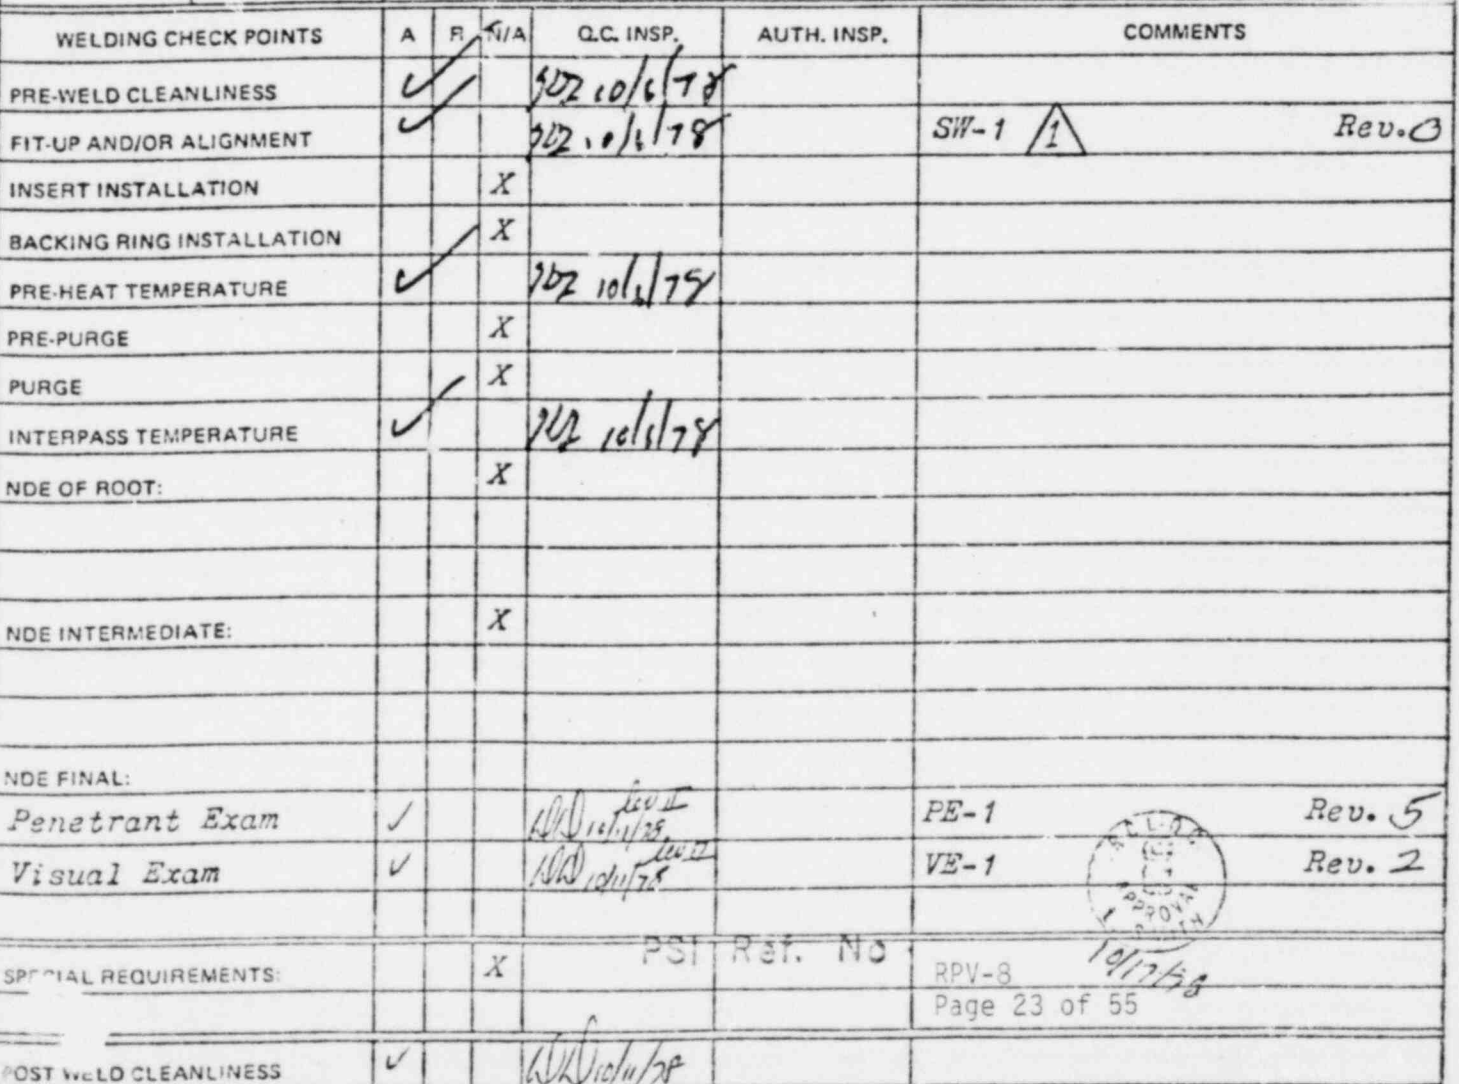 WELDING CHECK POINTS A R N/A Q.C. INSP. AUTH. INSP. COMMENTS
PRE-WELD CLEANLINESS ✓ 10/6/78
FIT-UP AND/OR ALIGNMENT ✓ 10/6/78 SW-1 1 Rev. 0
INSERT INSTALLATION X
BACKING RING INSTALLATION X
PRE-HEAT TEMPERATURE ✓ 10/6/78
PRE-PURGE X
PURGE X
INTERPASS TEMPERATURE ✓ 10/6/78
NDE OF ROOT: X
NDE INTERMEDIATE: X
NDE FINAL:
Penetrant Exam ✓ 10/11/78 Lev II PE-1 Rev. 5
Visual Exam ✓ 10/11/78 Lev II VE-1 Rev. 2
APPROVAL
PSI Ref. No
SPECIAL REQUIREMENTS: X RPV-8 10/17/78
Page 23 of 55
POST WELD CLEANLINESS ✓ 10/11/78